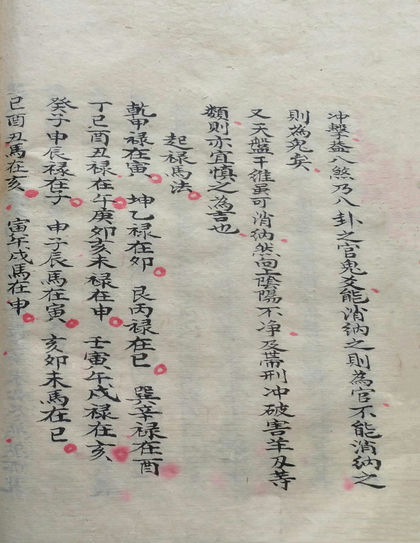 冲擊蓋八煞乃八卦之官鬼爻能消納之則為官不能消納之
則為鬼矣
又天盤干維雖可消納然向上陰陽不净及帶刑冲破害羊刃等
類則亦宜慎之為吉也
起祿馬法
乾甲祿在寅 坤乙祿在卯 艮丙祿在巳 巽辛祿在酉
丁巳酉丑祿在午庚卯亥未祿在申 壬寅午戌祿在亥
癸子申辰祿在子 申子辰馬在寅 亥卯未馬在巳
巳酉丑馬在亥 寅午戌馬在申